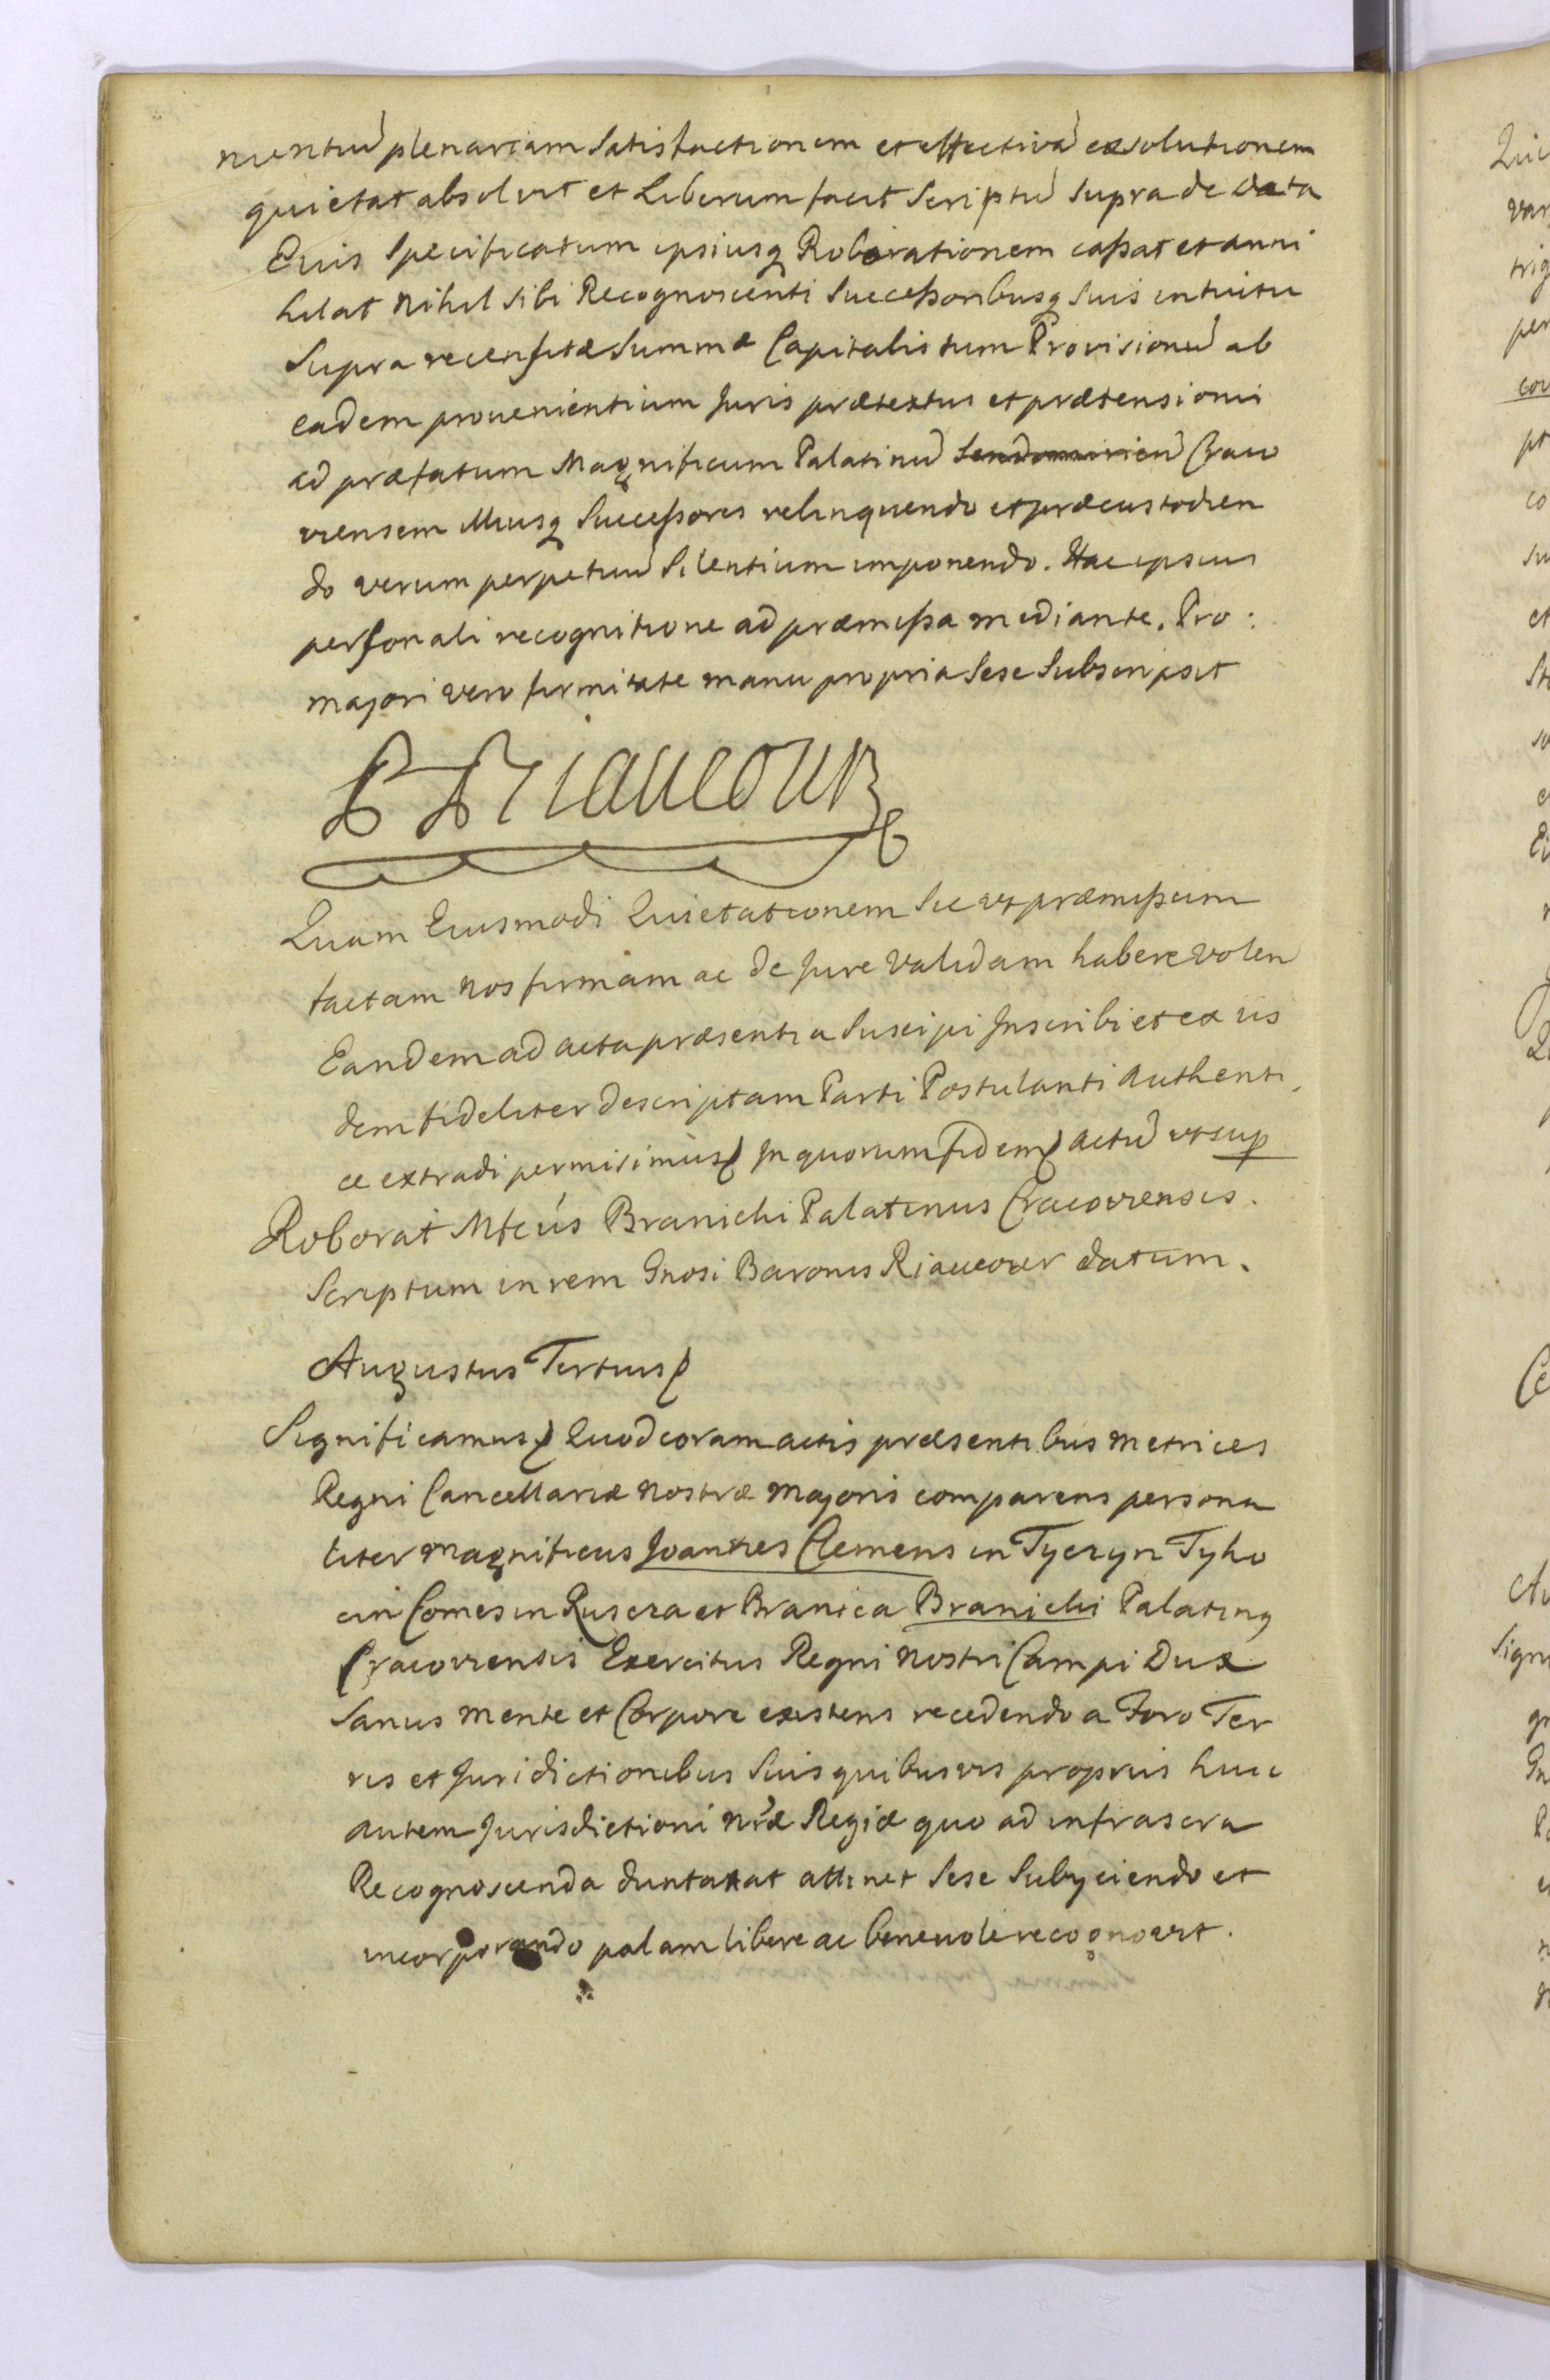 nientiũ plenariam Satisfactionem et effectivã exsolutionem
quietat absolvit et Liberum facit Scriptũ supra de data
Ejus Specificatum ipsiusq Roborationem cassat et anni
hilat Nihil sibi Recognoscenti Successoribusq suis intuitu
Supra recensitæ Summæ Capitalis tum Provisionũ ab
eadem provenientium Juris prætextus et prætensionis
ad præfatum Magnificum Palatinũ Sendomirien̄ Craco
viensem illiusq Successores relinquendo et præcustodien
do verum perpetuũ Silentium imponendo. Hac ipsius
personali recognitione ad præmissa mediante. Pro:
majori vero firmitate manu propria sese Subscripsit
P Riaucour
Quam Ejusmodi Quietationem Sic ut præmissum
factam Nos firmam ac de Jure validam habere volen
Eandem ad acta præsentia Suscipi Inscribi et ex iis
dem fideliter descriptam Parti Postulanti Authenti,
ce extradi permisimus In quorum fidem Actũ ut sup
Roborat Mfcus Branicki Palatinus Cracoviensis.
Scriptum in rem Gnosi Baronis Riaucour datum.
Augustus Tertius
Significamus Quod coram actis præsentibus Metrices
Regni Cancellariæ Nostræ Majoris comparens persona
liter Magnificus Joannes Clemens in Tyczyn Tyko
cin Comes in Ruscza et Branica Branicki Palatinq
Cracoviensis Exercitus Regni Nostri Campi Dux
Sanus mente et Corpore existens recedendo a Foro Ter
ris et Juridictionibus Suis quibusvis propriis huic
autem Jurisdictioni Nræ Regiæ quo ad infrascra
Recognoscenda duntaxat attinet Sese Subyciendo et
incorporando palam libere ac benevole recognovit.